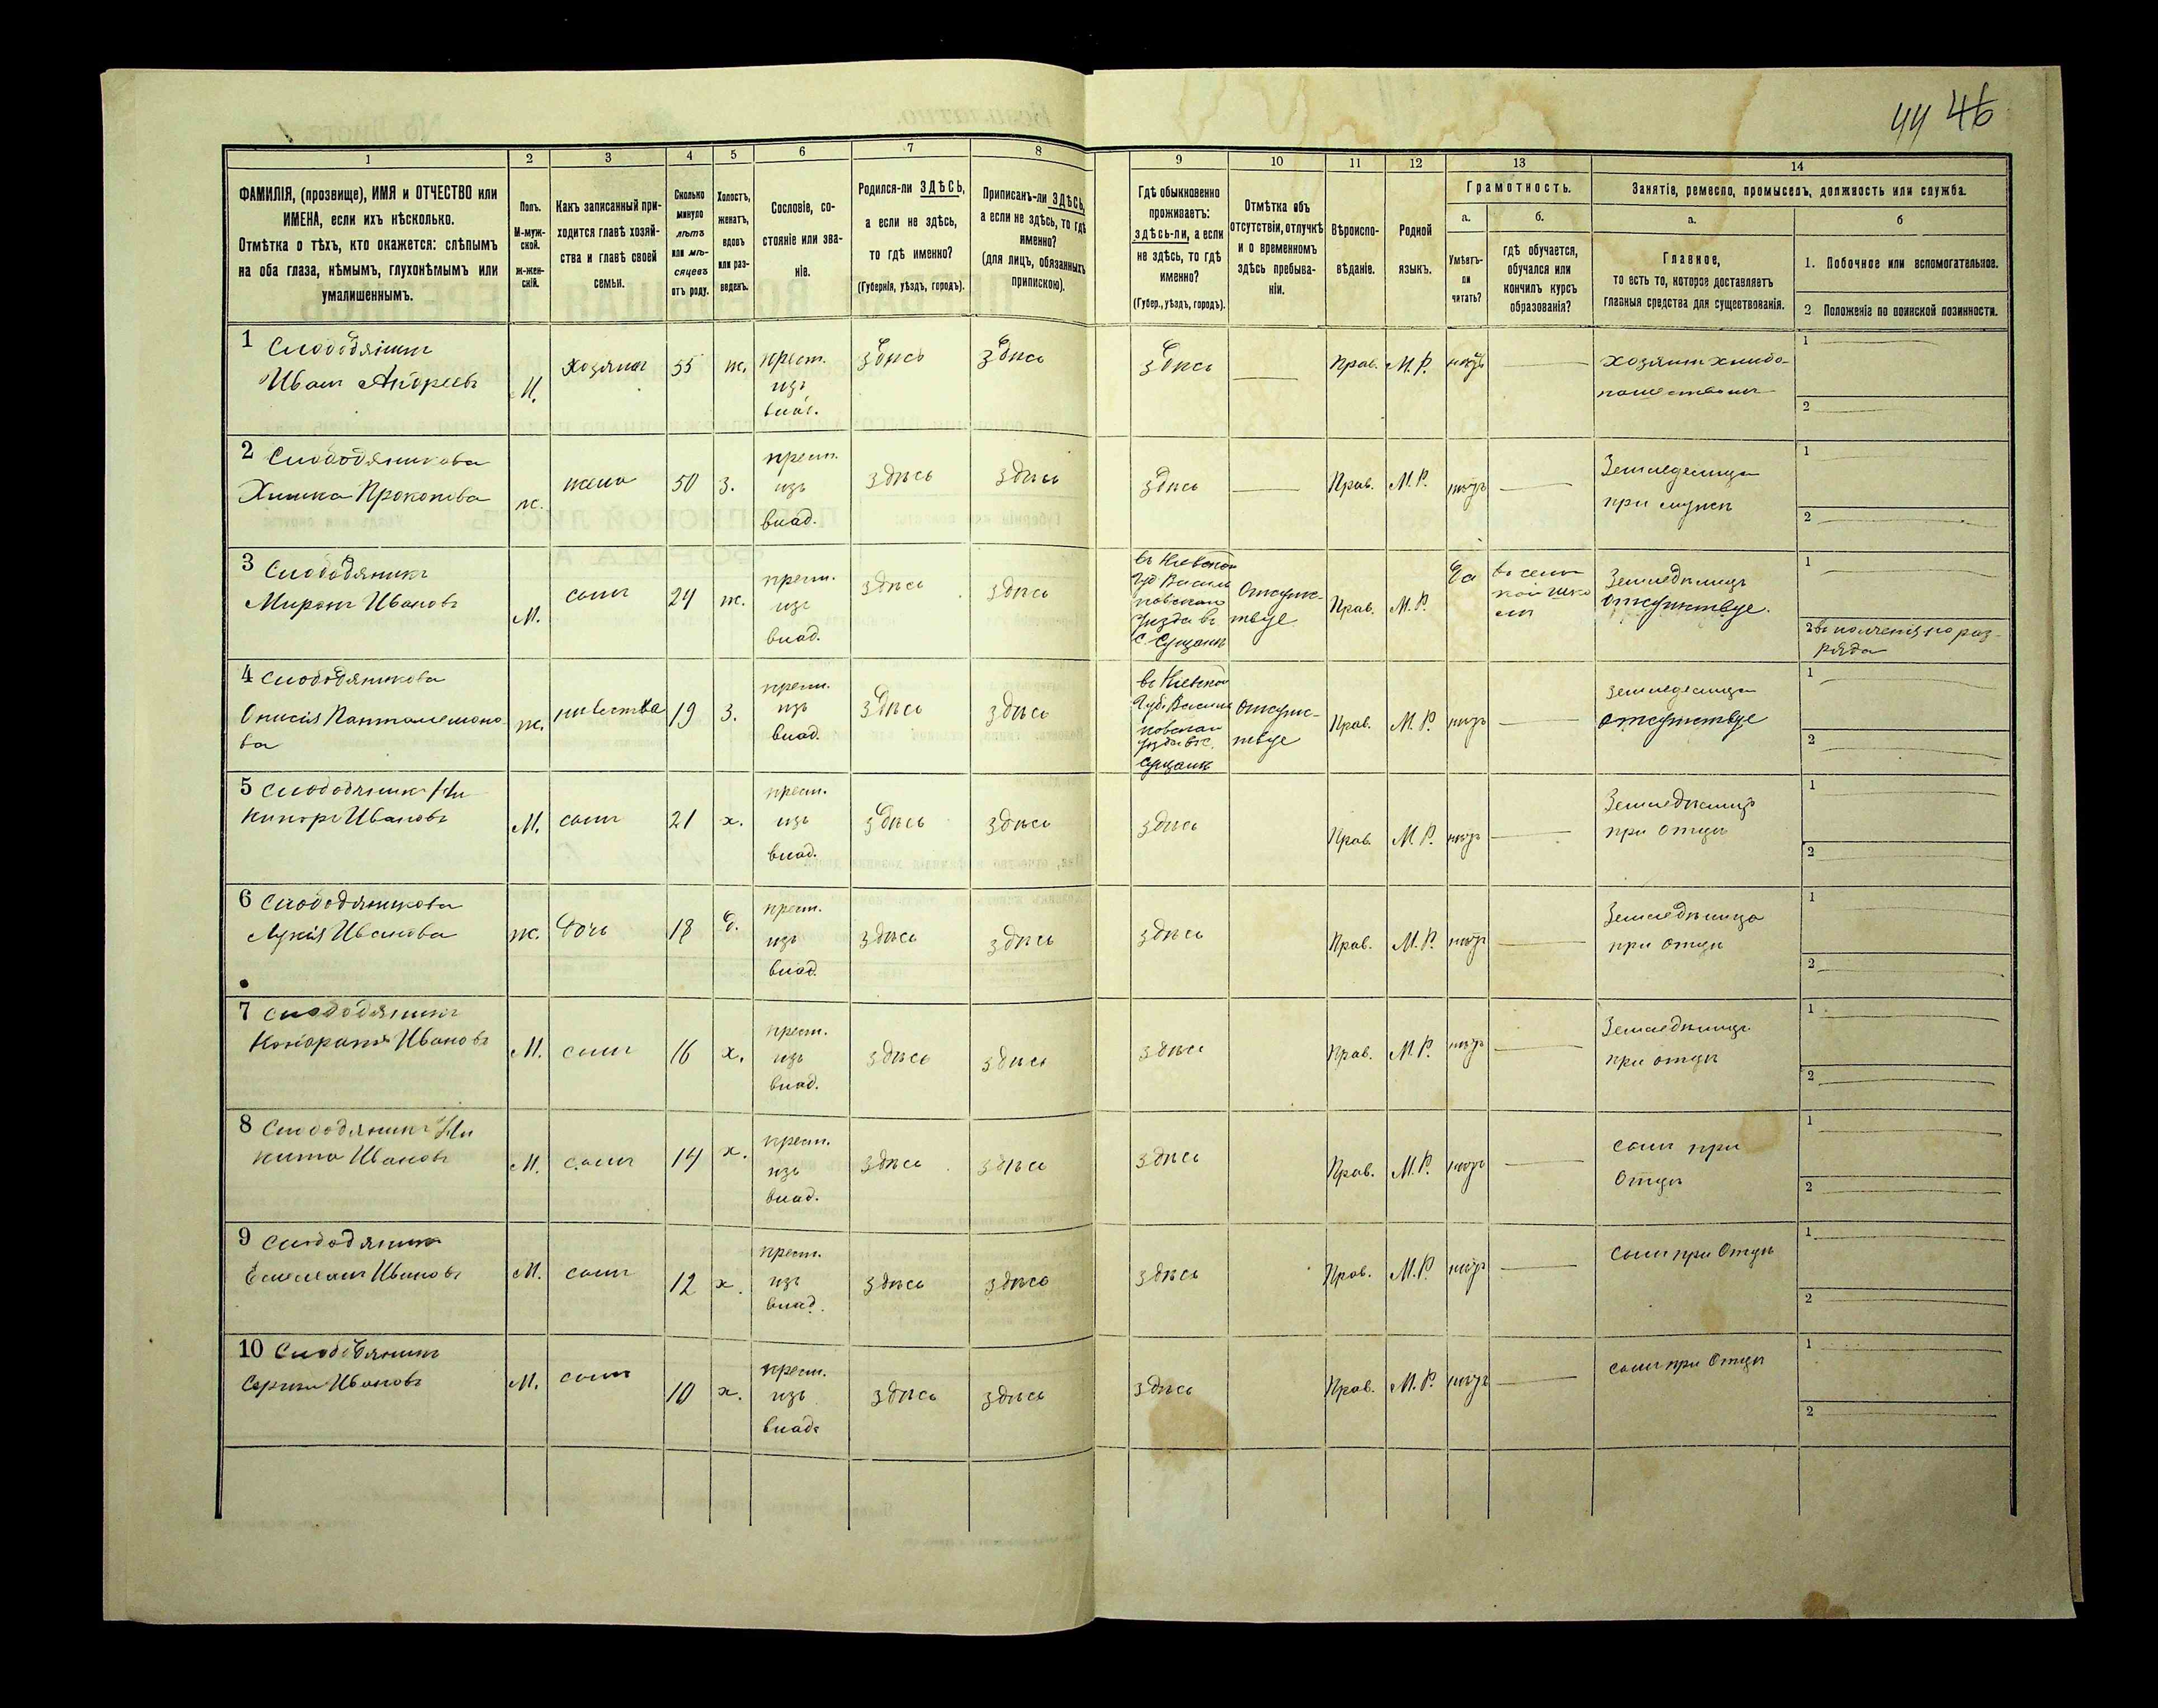 44 46
1 2 3 4 5 6 7 8 9 10 11 12 13 14
ФАМИЛІЯ, (прозвище), ИМЯ и ОТЧЕСТВО или
ИМЕНА, если ихъ нѣсколько.
Отмѣтка о тѣхъ, кто окажется: слѣпымъ
на оба глаза, нѣмымъ, глухонѣмымъ или
умалишеннымъ.
Полъ.
М-муж-
ской.
ж-жен-
скій.
Какъ записанный при-
ходится главѣ хозяй-
ства и главѣ своей
семьи.
Сколько
минуло
лѣтъ
или мѣ-
сяцевъ
отъ роду.
Холостъ,
женатъ,
вдовъ
или раз-
веденъ.
Сословіе, со-
стояніе или зва-
ніе.
Родился-ли ЗДѢСЬ,
а если не здѣсь,
то гдѣ именно?
(Губернія, уѣздъ, городъ).
Приписанъ-ли ЗДѢСЬ,
а если не здѣсь, то гдѣ
именно?
(для лицъ, обязанныхъ
припискою).
Гдѣ обыкновенно
проживаетъ:
здѣсь-ли, а если
не здѣсь, то гдѣ
именно?
(Губер., уѣздъ, городъ).
Отмѣтка объ
отсутствіи, отлучкѣ
и о временномъ
здѣсь пребыва-
ніи.
Вѣроиспо-
вѣданіе.
Родной
языкъ.
Грамотность.
а.
Умѣетъ-
ли
читать?
б.
гдѣ обучается,
обучался или
кончилъ курсъ
образованія?
Занятіе, ремесло, промыселъ, должность или служба.
а.
Главное,
то есть то, которое доставляетъ
главныя средства для существованія.
б
1. Побочное или вспомогательное.
2 Положеніе по воинской повинности.
1 Слободяникъ
Иванъ Андреевъ
М. Хозяинъ 55 ж. крест.
изъ
влад.
здѣсь здѣсь здѣсь Прав. М.Р. нѣтъ
хозяинъ хлѣбо-
пашествомъ
1
2
2 Слободяникова
Химка Прокопова
ж. жена 50 з. крест.
изъ
влад.
здѣсь здѣсь здѣсь Прав. М.Р. нѣтъ
Земледелица
при мужѣ
1
2
3 Слободяникъ
Миронъ Ивановъ
М. сынъ 24 ж. крест.
изъ
влад.
здѣсь здѣсь
въ Кіевской
Губ. Василь
ковскаго
уѣзда въ
с.
Отсутс-
твуе
Прав. М.Р. Да
въ сель
кой шко
лѣ
Земледѣлецъ
отсутствуе.
1
2 въ
ряда
4 Слободяникова
Онисія Пантелемоно-
ва
ж. невѣстка 19 з. крест.
изъ
влад.
здѣсь здѣсь
въ Кіевской
Губ. Василь
ковскаго
уѣзда въ с.
Отсутс-
твуе
Прав. М.Р. нѣтъ
земледелица
отсутствуе
1
2
5 Слободяникъ Ни
кифоръ Ивановъ
М. сынъ 21 х. крест.
изъ
влад.
здѣсь здѣсь здѣсь Прав. М.Р. нѣтъ
Земледѣлецъ
при отцѣ
1
2
6 Слободяникова
Лукія Иванова
ж. дочь 18 д. крест.
изъ
влад.
здѣсь здѣсь здѣсь Прав. М.Р. нѣтъ
Земледѣлица
при отцѣ
1
2
7 Слободяникъ
Кондратъ Ивановъ
М. сынъ 16 х. крест.
изъ
влад.
здѣсь здѣсь здѣсь Прав. М.Р. нѣтъ
Земледѣлецъ
при отцѣ
1
2
8 Слободяникъ Ни
кита Ивановъ
М. сынъ 14 х. крест.
изъ
влад.
здѣсь здѣсь здѣсь Прав. М.Р. нѣтъ
сынъ при
Отцѣ
1
2
9 Слободяникъ
Емельянъ Ивановъ
М. сынъ 12 х. крест.
изъ
влад.
здѣсь здѣсь здѣсь Прав. М.Р. нѣтъ
сынъ при Отцѣ
1
2
10 Слободяникъ
Сергѣй Ивановъ
М. сынъ 10 х. крест.
изъ
влад.
здѣсь здѣсь здѣсь Прав. М.Р. нѣтъ
сынъ при Отцѣ
1
2